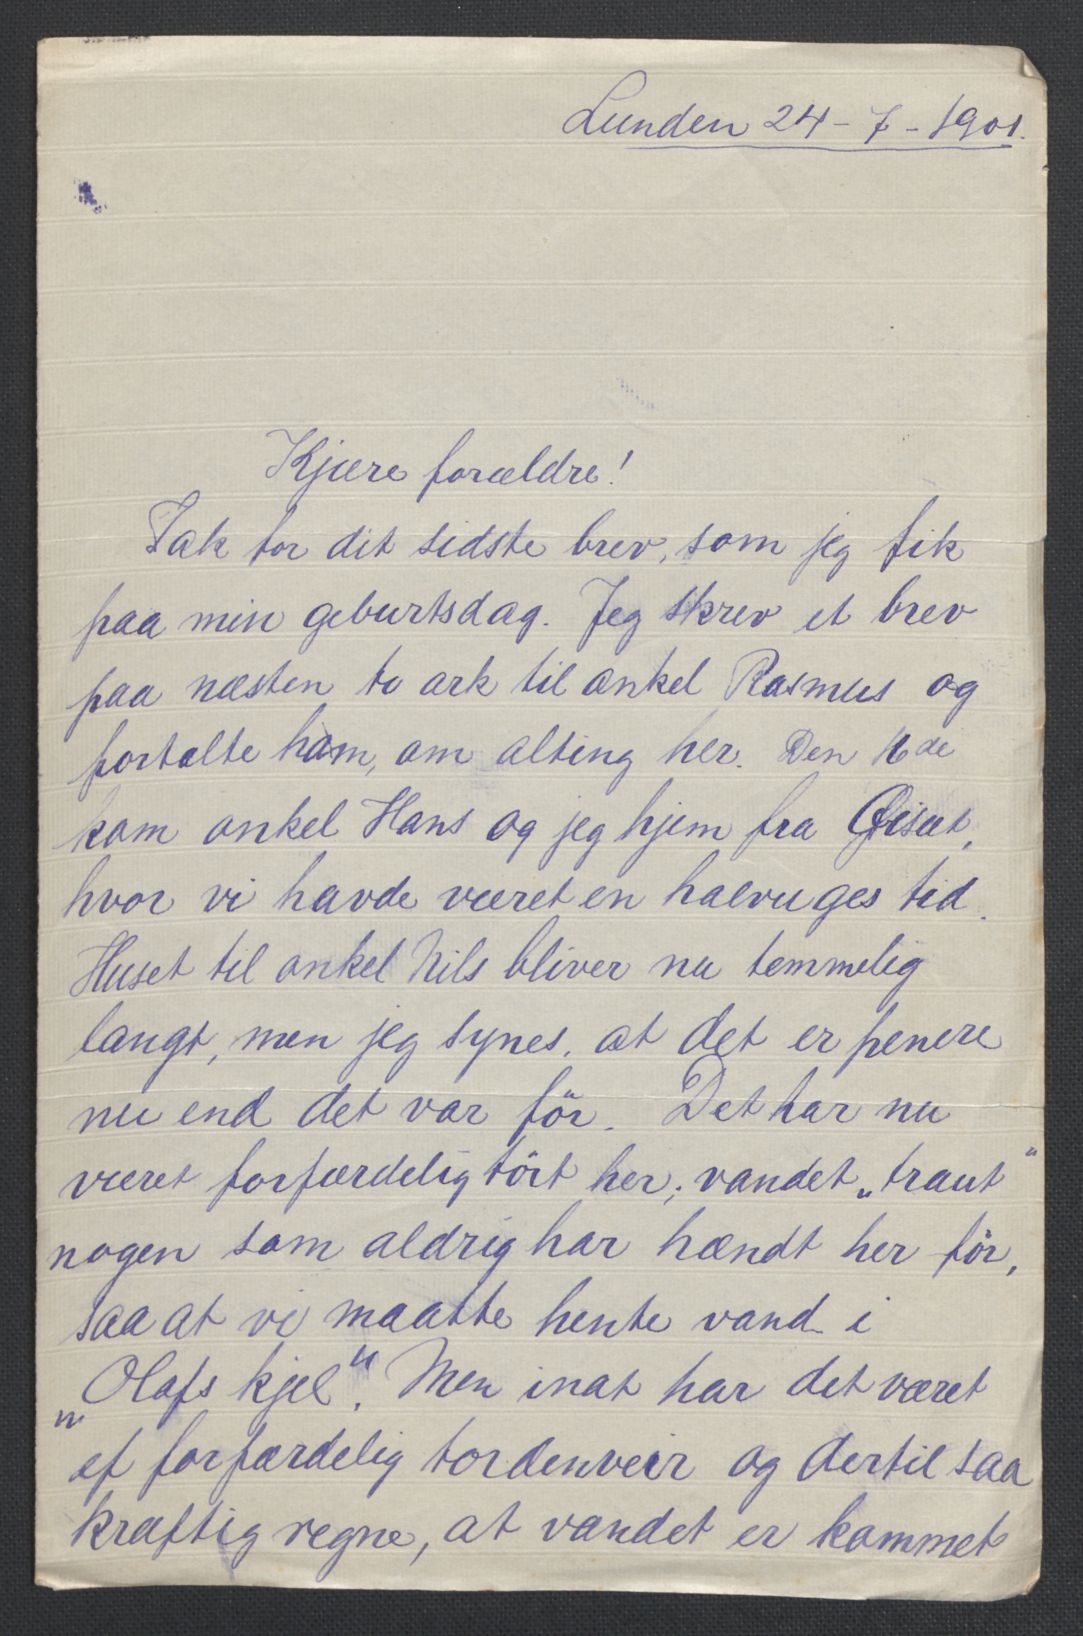 Lunden 24-7-1901.
Kjære forældre!
Tak for dit sidste brev, som jeg fik
paa min geburtsdag. Jeg skrev et brev
paa næsten to ark til onkel Rasmus og
fortalte ham, om alting her. Den 16de
kom onkel Hans og jeg hjem fra Øisæt,
hvor vi havde været en halvuges tid.
Huset til onkel Nils bliver nu temmelig
langt, men jeg synes, at det er penere
nu end det var för. Det har nu
været forfærdelig tört her; vandet „traut“
nogen som aldrig har hændt her för,
saa at vi maatte hente vand i
„Olafs kjel“. Men inat har det været
et forfærdelig tordenveir og dertil saa
kraftig regne, at vandet er kommet